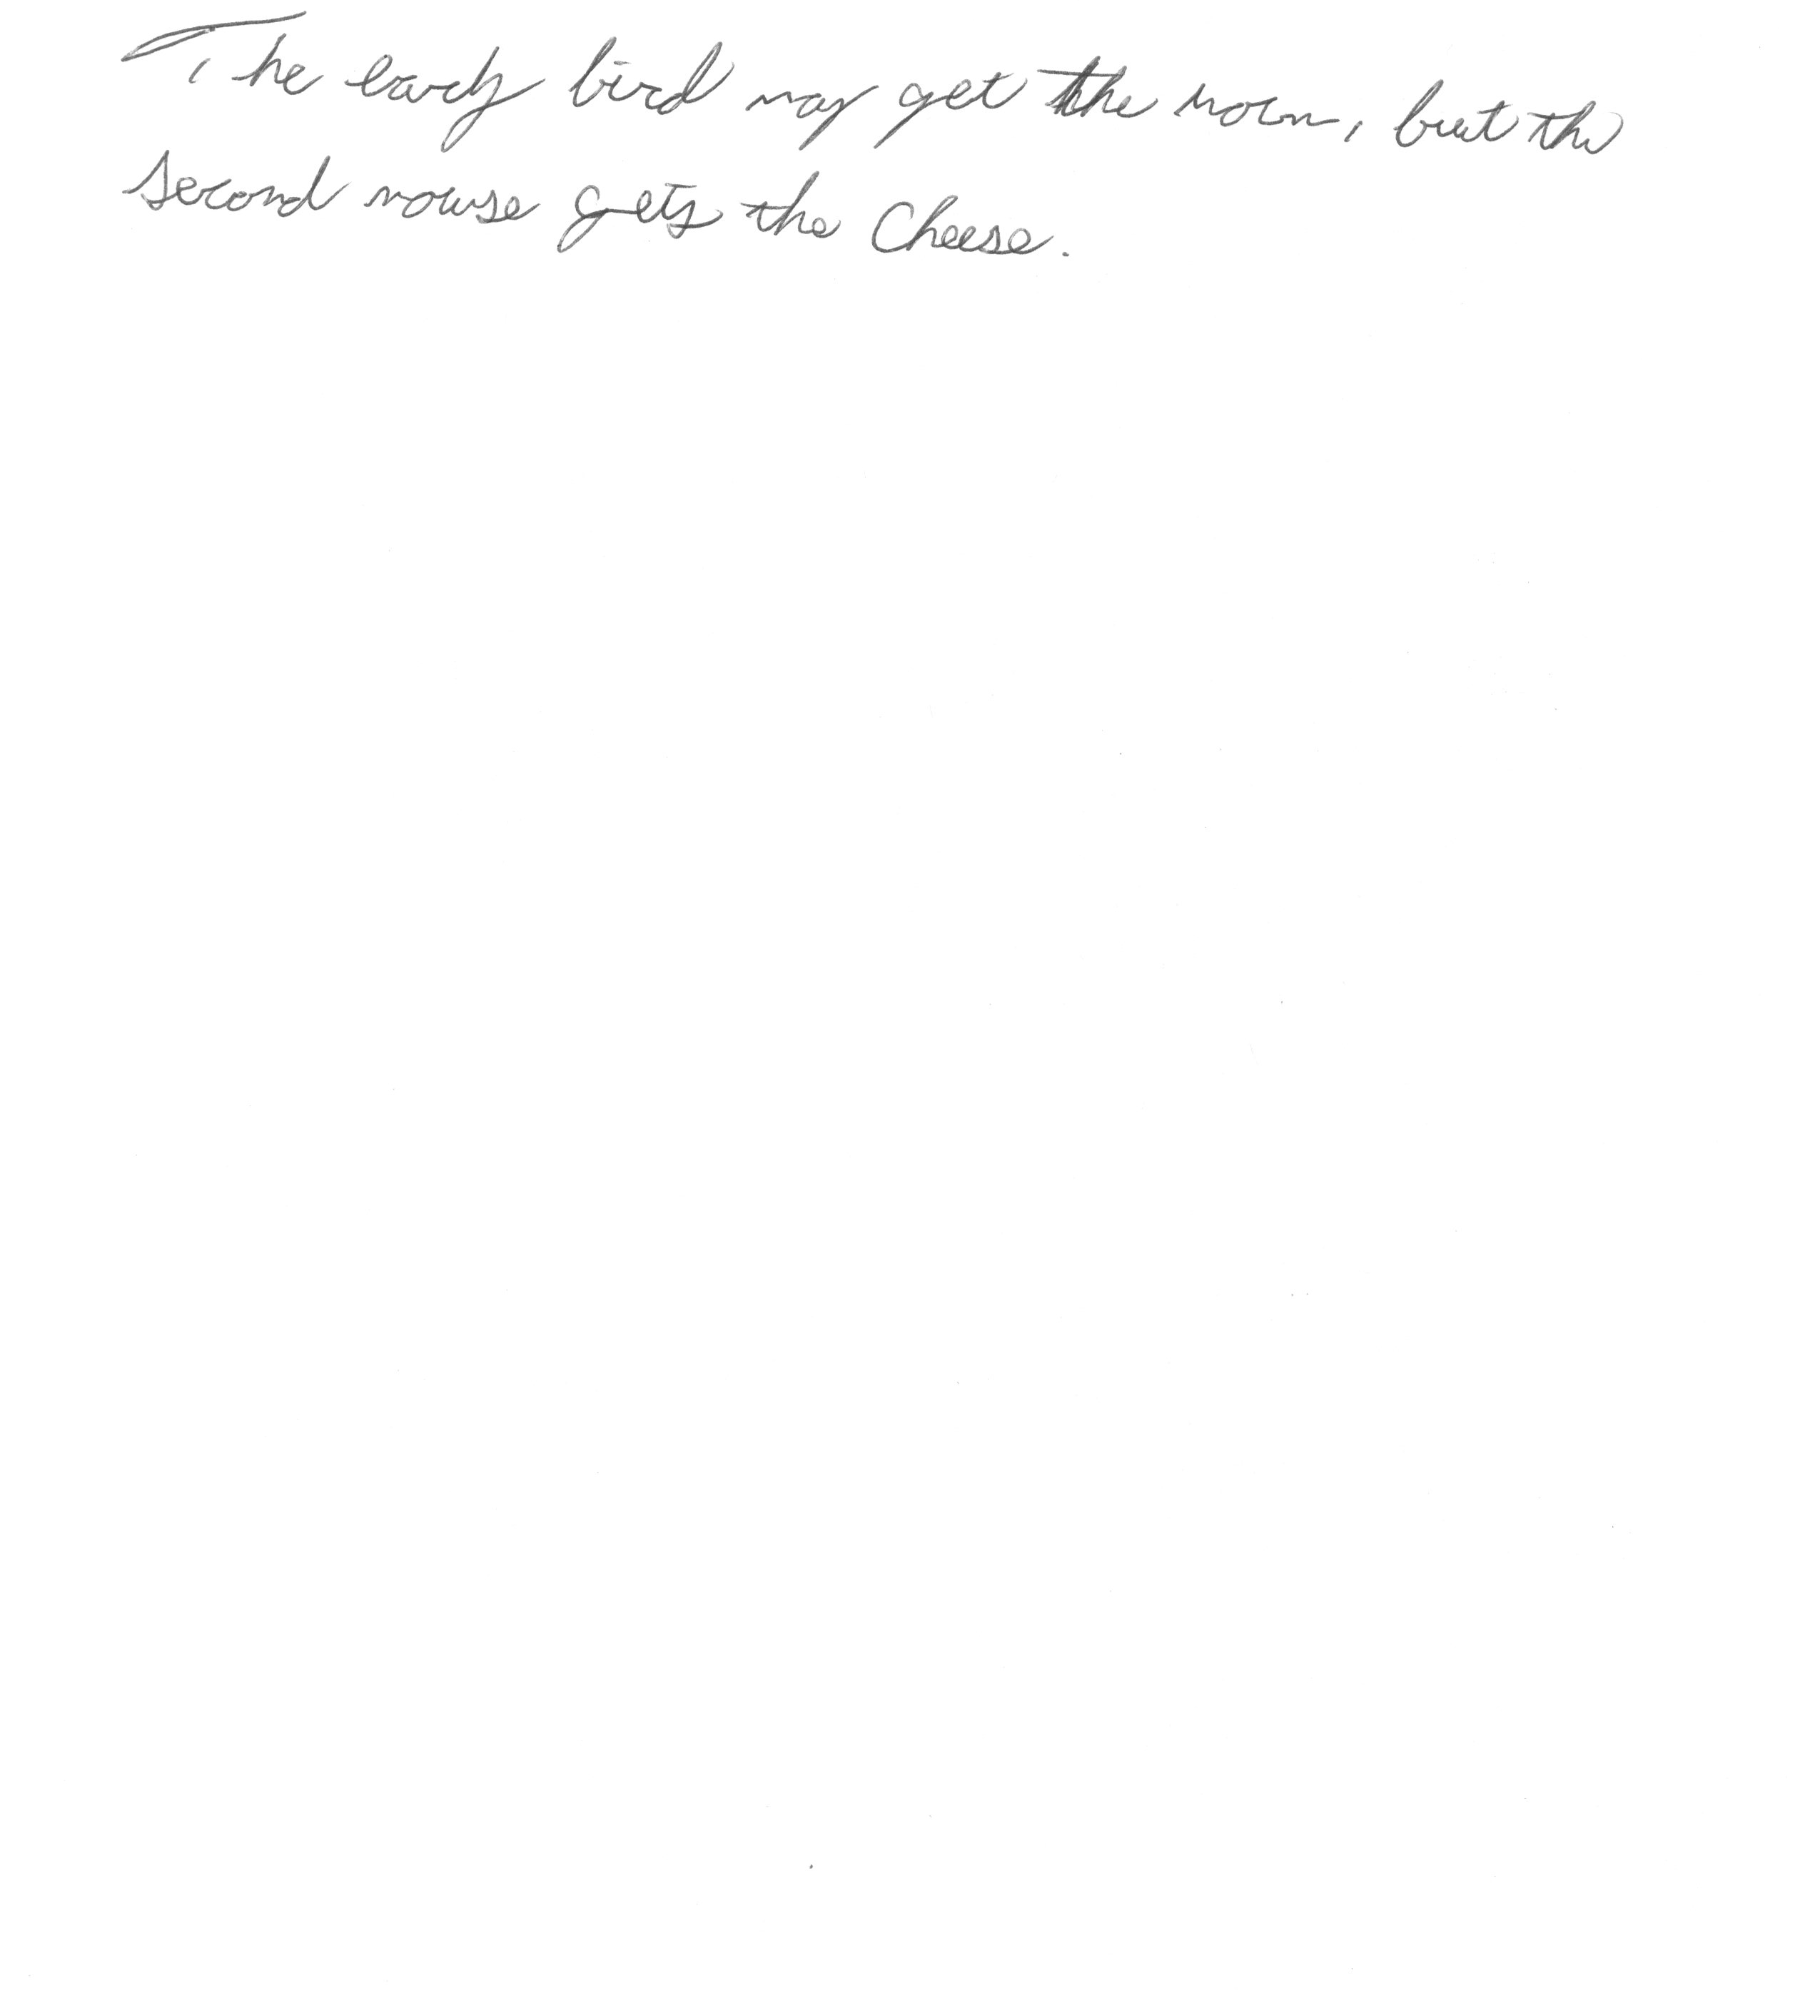 The early bird may get the worm, but the
second mouse gets the Cheese.